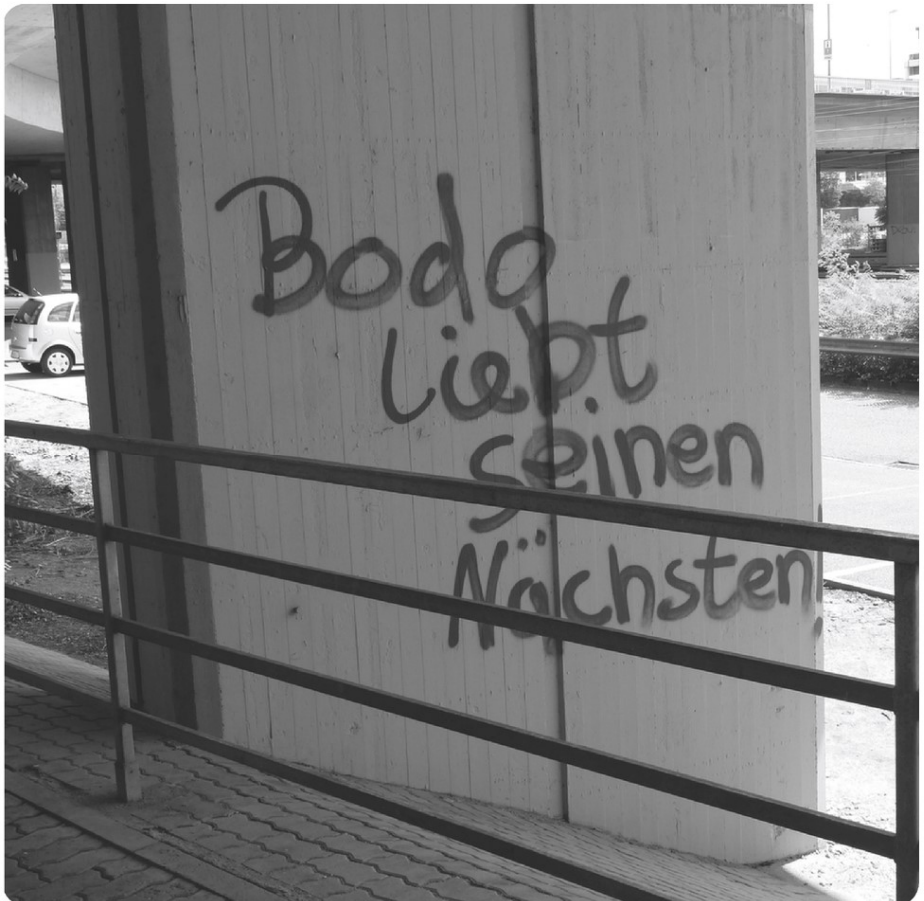 Bodo
liebt
seinen
Nächsten